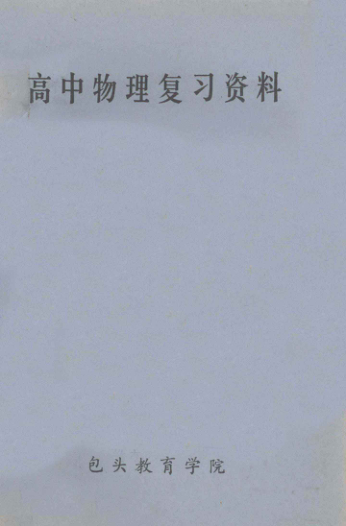 高中物理复习资料
包头教育学院